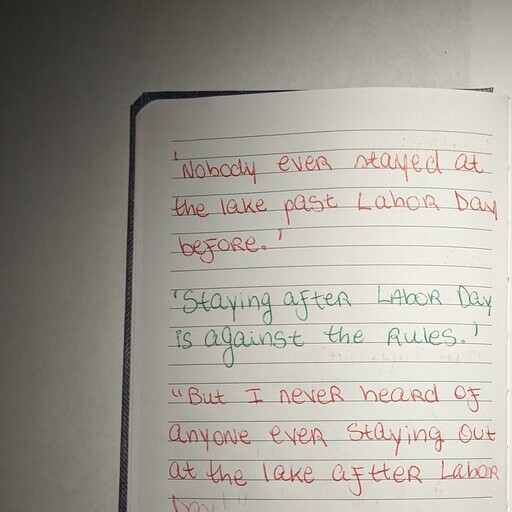 'Nobody ever stayed at
the lake past Labor Day
before.'
'Staying after Labor Day
is against the rules.'
"But I never heard of
anyone ever staying out
at the lake aftter Labor
Day!"